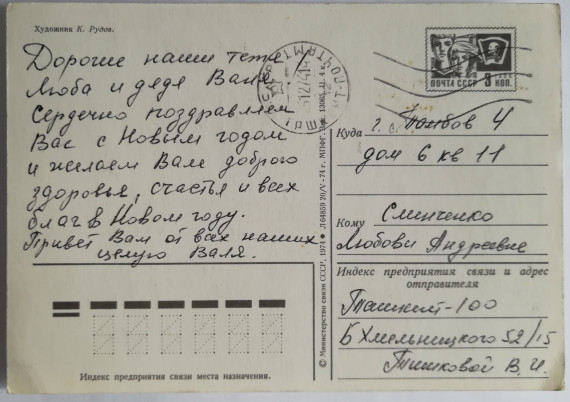 Художник К. Рудов.
Дорогие наши тетя
Люба и дядя Ваня
Сердечно поздравляем
Вас с Новым годом
и желаем Вам доброго
здоровья, счастья и всех
благ в Новом году.
Привет Вам от всех наших
целую Валя.
Индекс предприятия связи места назначения.
© Министерство связи СССР, 1974
ПОЧТА СССР 3 КОП.
Куда г. Тамбов 4
дом 6 кв 11
Кому Сминченко
Любови Андреевне
Индекс предприятия связи и адрес
отправителя
Ташкент-100
Б Хмельницкого 52/15
Тишковой В. И.